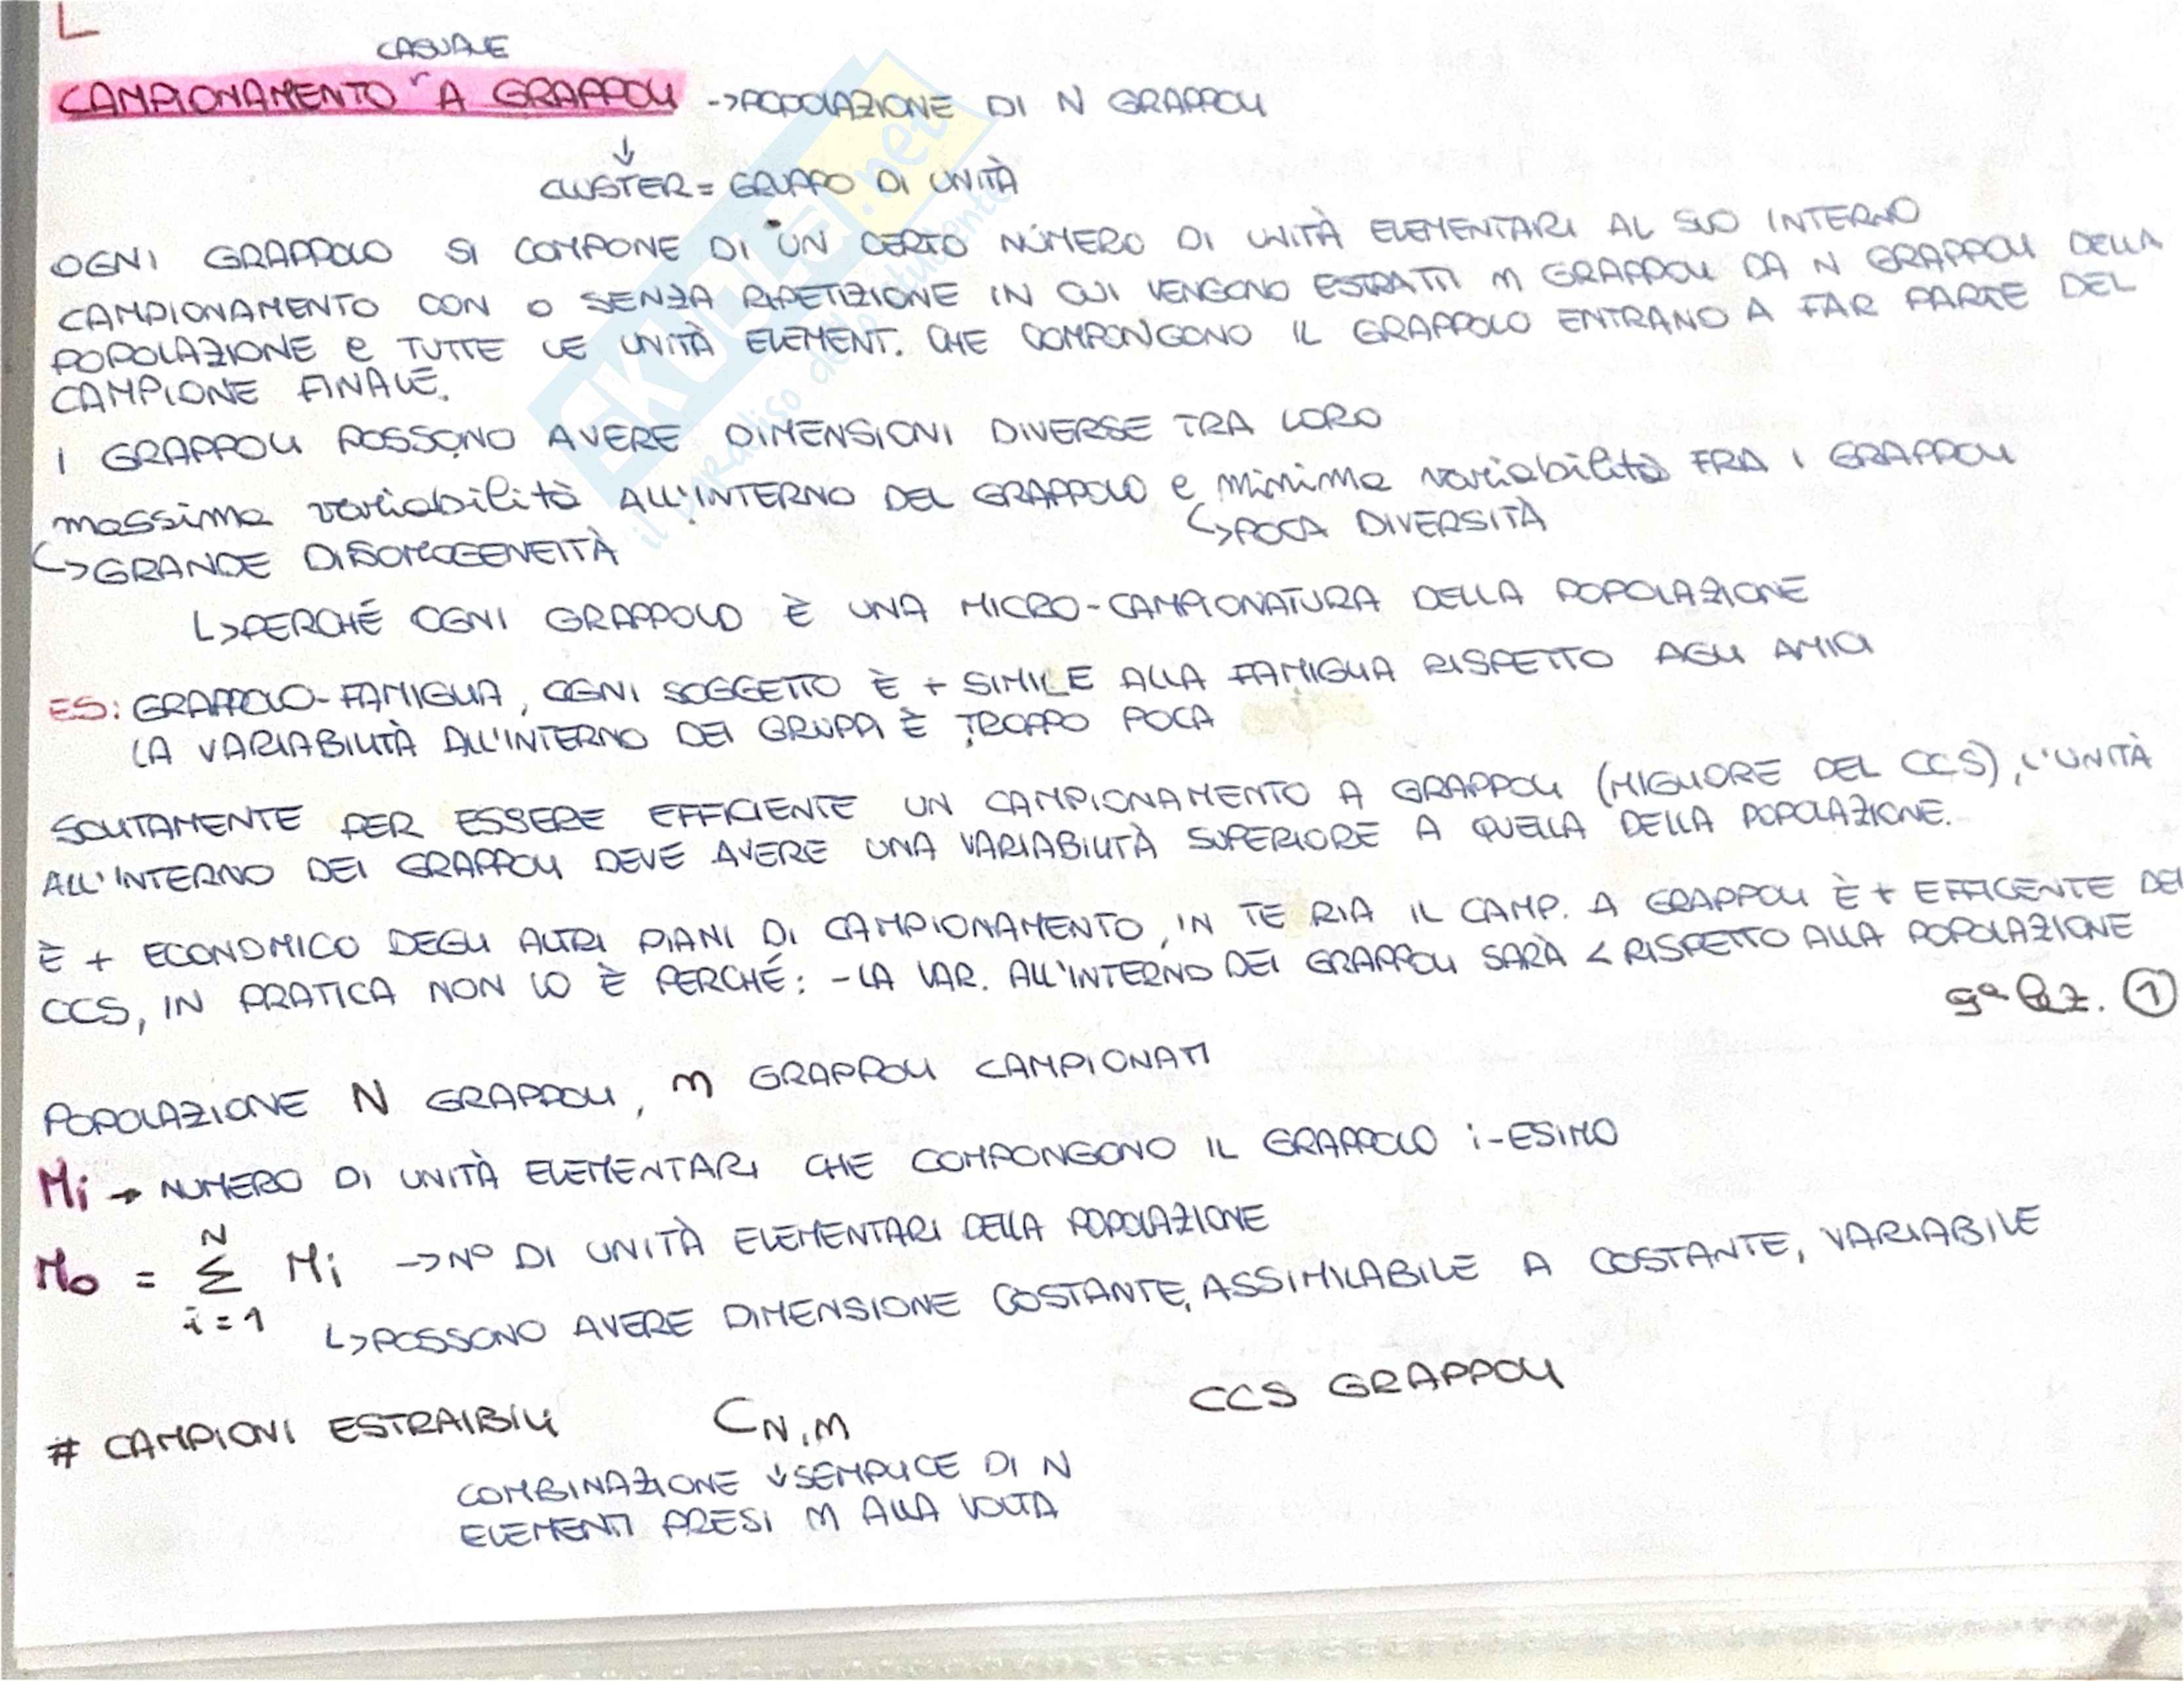 CASUALE
CAMPIONAMENTO A GRAPPOLI -> POPOLAZIONE DI N GRAPPOLI
↓
CLUSTER = GRUPPO DI UNITÀ
OGNI GRAPPOLO SI COMPONE DI UN CERTO NUMERO DI UNITÀ ELEMENTARI AL SUO INTERNO
CAMPIONAMENTO CON O SENZA RIPETIZIONE IN CUI VENGONO ESTRATTI m GRAPPOLI DA N GRAPPOLI DELLA
POPOLAZIONE e TUTTE LE UNITÀ ELEMENT. CHE COMPONGONO IL GRAPPOLO ENTRANO A FAR PARTE DEL
CAMPIONE FINALE.
I GRAPPOLI POSSONO AVERE DIMENSIONI DIVERSE TRA LORO
massima variabilità ALL'INTERNO DEL GRAPPOLO e minima variabilità FRA I GRAPPOLI
↳ POCA DIVERSITÀ
↳ GRANDE DISOMOGENEITÀ
↳ PERCHÉ OGNI GRAPPOLO È UNA MICRO-CAMPIONATURA DELLA POPOLAZIONE
ES: GRAPPOLO-FAMIGLIA, OGNI SOGGETTO È + SIMILE ALLA FAMIGLIA RISPETTO AGLI AMICI
LA VARIABILITÀ ALL'INTERNO DEI GRUPPI È TROPPO POCA
SOLITAMENTE PER ESSERE EFFICIENTE UN CAMPIONAMENTO A GRAPPOLI (MIGLIORE DEL CCS), L'UNITÀ
ALL'INTERNO DEI GRAPPOLI DEVE AVERE UNA VARIABILITÀ SUPERIORE A QUELLA DELLA POPOLAZIONE.
È + ECONOMICO DEGLI ALTRI PIANI DI CAMPIONAMENTO, IN TE RIA IL CAMP. A GRAPPOLI È + EFFICENTE DEL
CCS, IN PRATICA NON LO È PERCHÉ: - LA VAR. ALL'INTERNO DEI GRAPPOLI SARÀ < RISPETTO ALLA POPOLAZIONE
9ª lez. ①
POPOLAZIONE N GRAPPOLI, m GRAPPOLI CAMPIONATI
Mi → NUMERO DI UNITÀ ELEMENTARI CHE COMPONGONO IL GRAPPOLO i-ESIMO
M₀ = Σ_{i=1}^{N} Mi -> N° DI UNITÀ ELEMENTARI DELLA POPOLAZIONE
↳ POSSONO AVERE DIMENSIONE COSTANTE, ASSIMILABILE A COSTANTE, VARIABILE
# CAMPIONI ESTRAIBILI C_{N,m} CCS GRAPPOLI
COMBINAZIONE ↓ SEMPLICE DI N
ELEMENTI PRESI m ALLA VOLTA
SKUOLA.net
il paradiso dello studente